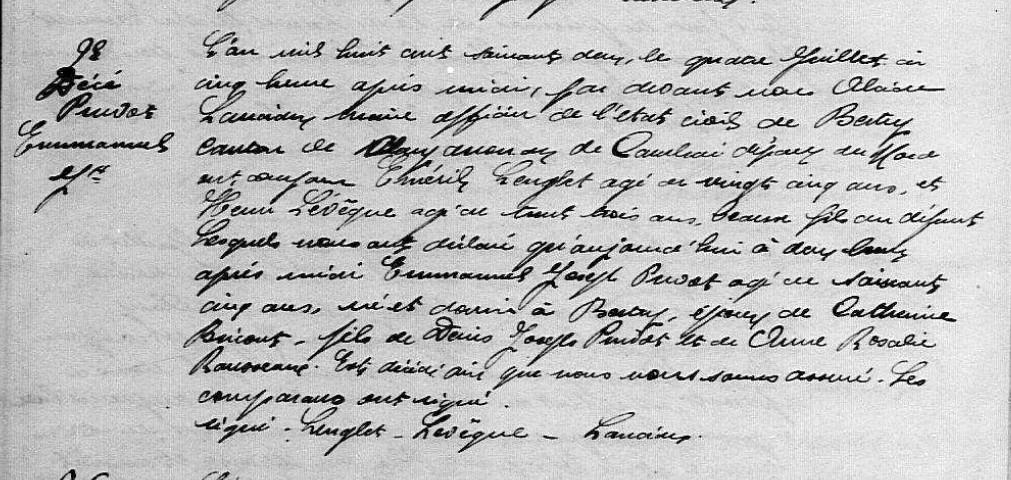 98
Décè
Pruvot
Emmanuel
Jph
L'an mil huit cent soixante deux, le quatre Juillet à
cinq heure après midi, par devant nous
maire officier de l'état civil de Bertry
canton de de Cambrai départ du Nord
ont comparu Lenglet agé de vingt cinq ans, et
Henri Levêque agé de trente trois ans, beaux fils du défunt
Lesquels nous ont déclaré qu'aujourd'hui à deux heures
après midi Emmanuel Joseph Pruvot agé de soixante
cinq ans, né et domicié à Bertry, époux de Catherine
fils de Denis Joseph Pruvot et de Anne Rosalie
Est décédé ainsi que nous nous sommes assuré. Les
comparans ont signé.
signé - Lenglet - Levêque -